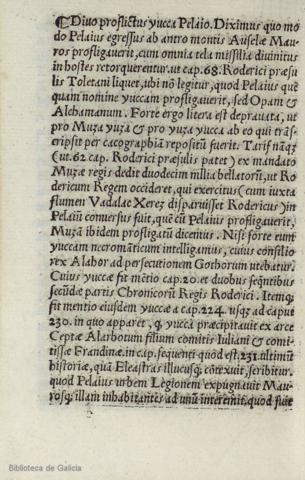 ¶Diuo profligctus yucca Pelaio. Diximus quo mo
do Pelaius egressus ab antro montis Auselæ Mau-
ros profligauerit, cum omnia tela missilia diuinitus
in hostes retorquerentur. ut cap. 68. Roderici præsu
lis Toletani liquet, ubi nō legitur, quod Pelaius quē
quam nomine yuccam profligauerit, sed Opam &
Alchamanum. Forte ergo litera est deprauata, ut
pro Muza yuza & pro yuza yucca ab eo qui trāf-
scripsit per cacographiam repositū fuerit. Tarif nāqȝ
(ut 62 cap. Roderici præsulis patet) ex mandato
Muzæ regis dedit duodecim millia bellatorū, ut Ro
dericum Regem occideret, qui exercitus (cum iuxta
flumen Vadalac Xerez disparuisset Rodericus) in
Pelaiū conuersus fuit, quē cū Pelaius profligauerit,
Muzā ibidem profligatū dicemus. Nisi forte eum
yuccam necromāticum intelligamus, cuius consilio
rex Alabor ad persecutionem Gothorum utebatur.
Cuius yuccæ fit mētio cap. 20. et duobus seqūtibus
secūdæ partis Chronicorū Regis Roderici. Itemqȝ
fit mentio eiusdem yuccæ a cap. 224. usqȝ ad caput
230. in quo apparet, q yuccā præcipitauit ex arce
Ceptæ Alarbotum filium comitis Iuliani & comi-
tissæ Frandinæ. in cap. sequenti quod est, 231. ultimū
historiæ, quā Eleastras illucusqȝ cōtexuit, scribitur.
quod Pelaius urbem Legionem expugnauit Mau-
rosqȝ illam inhabitantes ad unū interemit. quod fuit
Biblioteca de Galicia